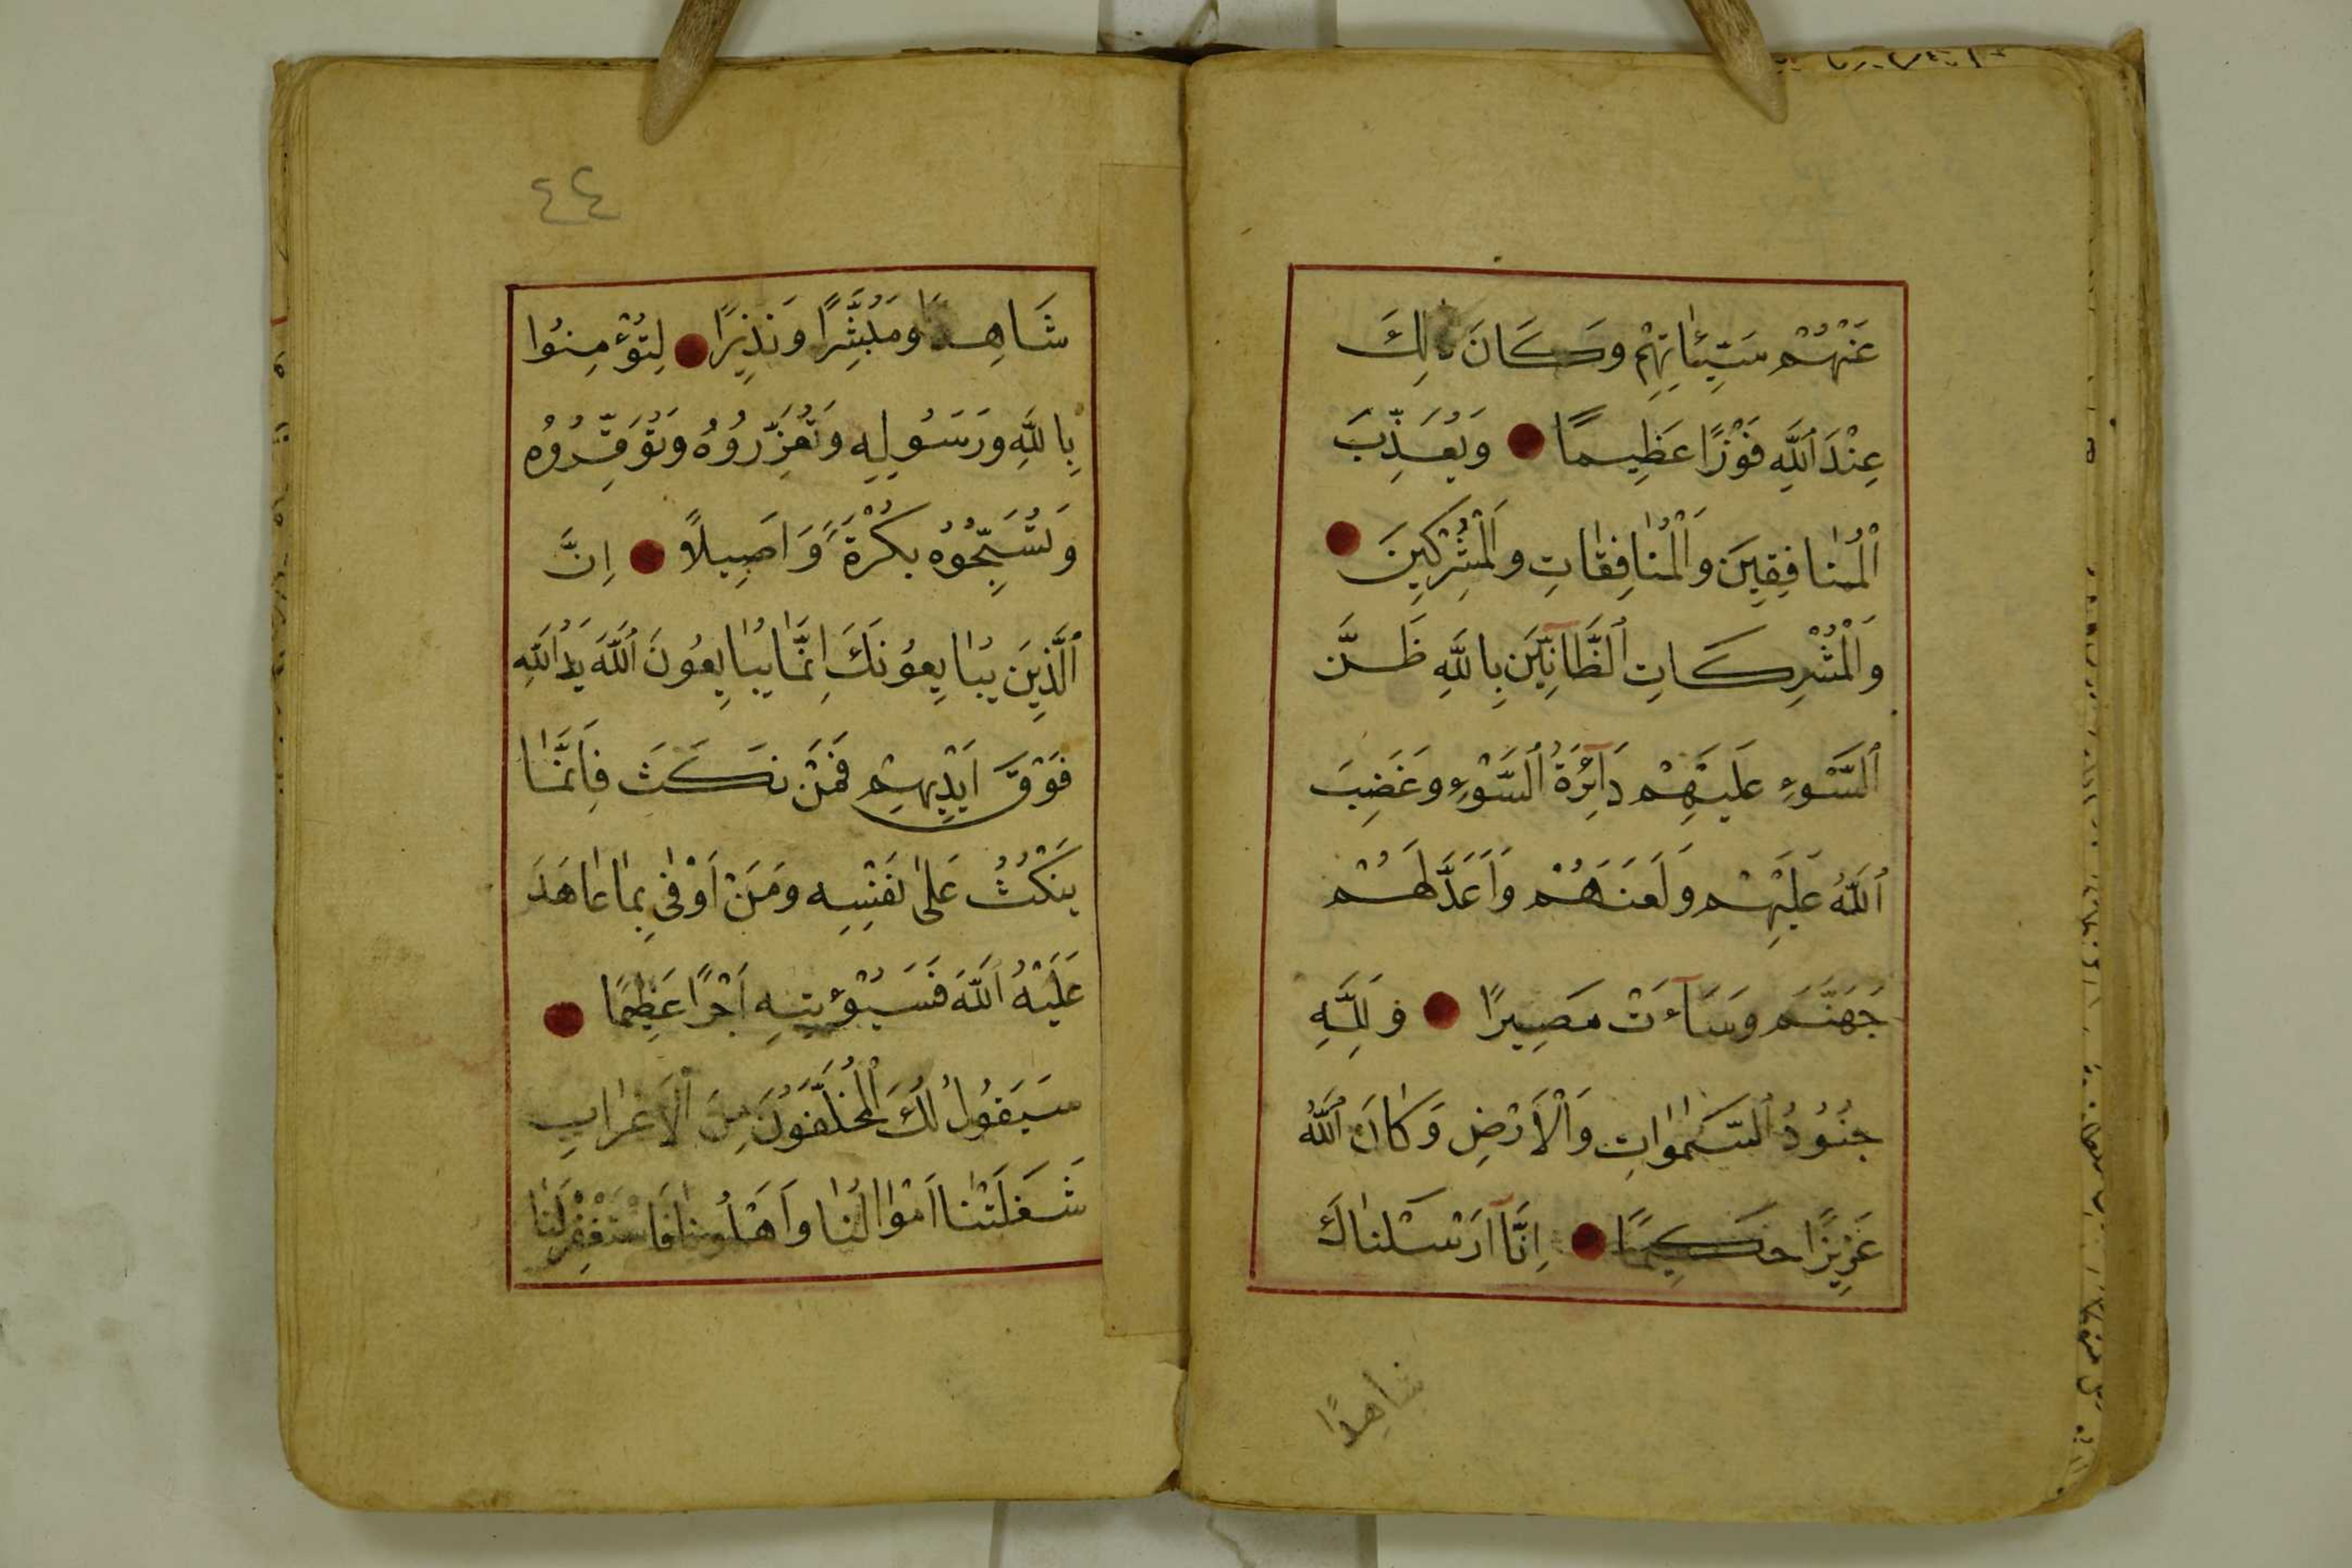 عَنْهُمْ سَيِّئَاتِهِمْ وَكَانَ ذٰلِكَ
عِنْدَ ٱللَّهِ فَوْزًا عَظِيمًا ● وَيُعَذِّبَ
ٱلْمُنٰافِقِينَ وَالْمُنٰافِقٰاتِ وَالْمُشْرِكِينَ ●
وَالْمُشْرِكَاتِ ٱلظَّآنِّينَ بِاللَّهِ ظَنَّ
ٱلسَّوْءِ عَلَيْهِمْ دَآئِرَةُ ٱلسَّوْءِ وَغَضِبَ
ٱللَّهُ عَلَيْهِمْ وَلَعَنَهُمْ وَاَعَدَّ لَهُمْ
جَهَنَّمَ وَسَآءَتْ مَصِيرًا ● وَلِلَّهِ
جُنُودُ ٱلسَّمٰوٰاتِ وَالْاَرْضِ وَكَانَ ٱللَّهُ
عَزِيزًا حَكِيمًا ● اِنَّآ اَرْسَلْنٰاكَ
شاهِدًا
٤٤
شَاهِدًا وَمُبَشِّرًا وَنَذِيرًا ● لِتُؤْمِنُوا
بِاللَّهِ وَرَسُولِهِ وَتُعَزِّرُوهُ وَتُوَقِّرُوُه
وَتُسَبِّحُوُه بُكْرَةً وَاَصِيلاً ● اِنَّ
ٱلَّذِينَ يُبٰايِعُونَكَ اِنَّمٰا يُبٰايِعُونَ ٱللَّهَ يَدُ ٱللَّهِ
فَوْقَ اَيْدِيهِمْ فَمَنْ نَكَثَ فَاِنَّمٰا
يَنْكُثُ عَلىٰ نَفْسِهِ وَمَنْ اَوْفىٰ بِمٰا عٰاهَدَ
عَلَيْهُ ٱللَّهَ فَسَيُؤْتِيهِ اَجْرًا عَظِيمًا ●
سَيَقُولُ لَكَ ٱلْمُخَلَّفُونَ مِنَ ٱلْاَعْرٰابِ
شَغَلَتْنٰا اَمْوٰالُنٰا وَاَهْلُونٰا فَاسْتَغْفِرْ لَنٰا